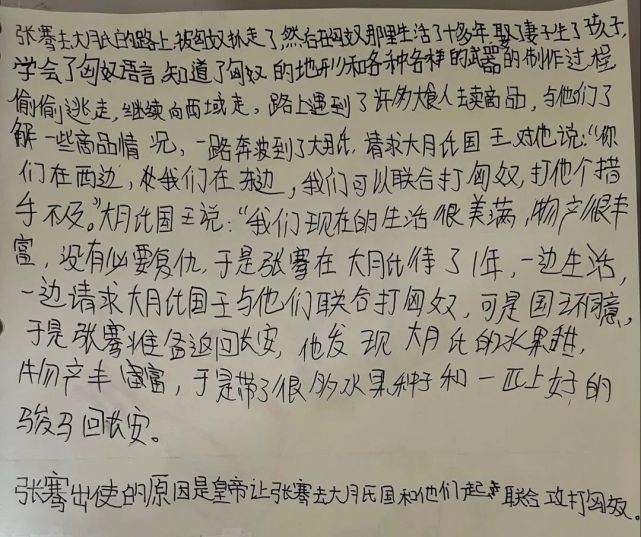 张骞去大月氏的路上,被匈奴抓走了,然后在匈奴那里生活了十多年,娶了妻子生了孩子,
学会了匈奴语言,知道了匈奴的地形和各种各样的武器的制作过程
偷偷逃走,继续向西域走,路上遇到了许多大食人去卖商品,与他们了
解一些商品情况,一路奔波到了大月氏,请求大月氏国王,对他说:“你
们在西边,我们在东边,我们可以联合打匈奴,打他个措
手不及。”大月氏国王说:“我们现在的生活很美满,物产很丰
富,没有必要复仇,于是张骞在大月氏待了1年,一边生活,
一边请求大月氏国王与他们联合打匈奴,可是国王不同意,
于是张骞准备返回长安,他发现大月氏的水果甜,
物产丰富,于是带了很多水果种子和一匹上好的
骏马回长安。
张骞出使的原因是皇帝让张骞去大月氏国和他们一起联合攻打匈奴。